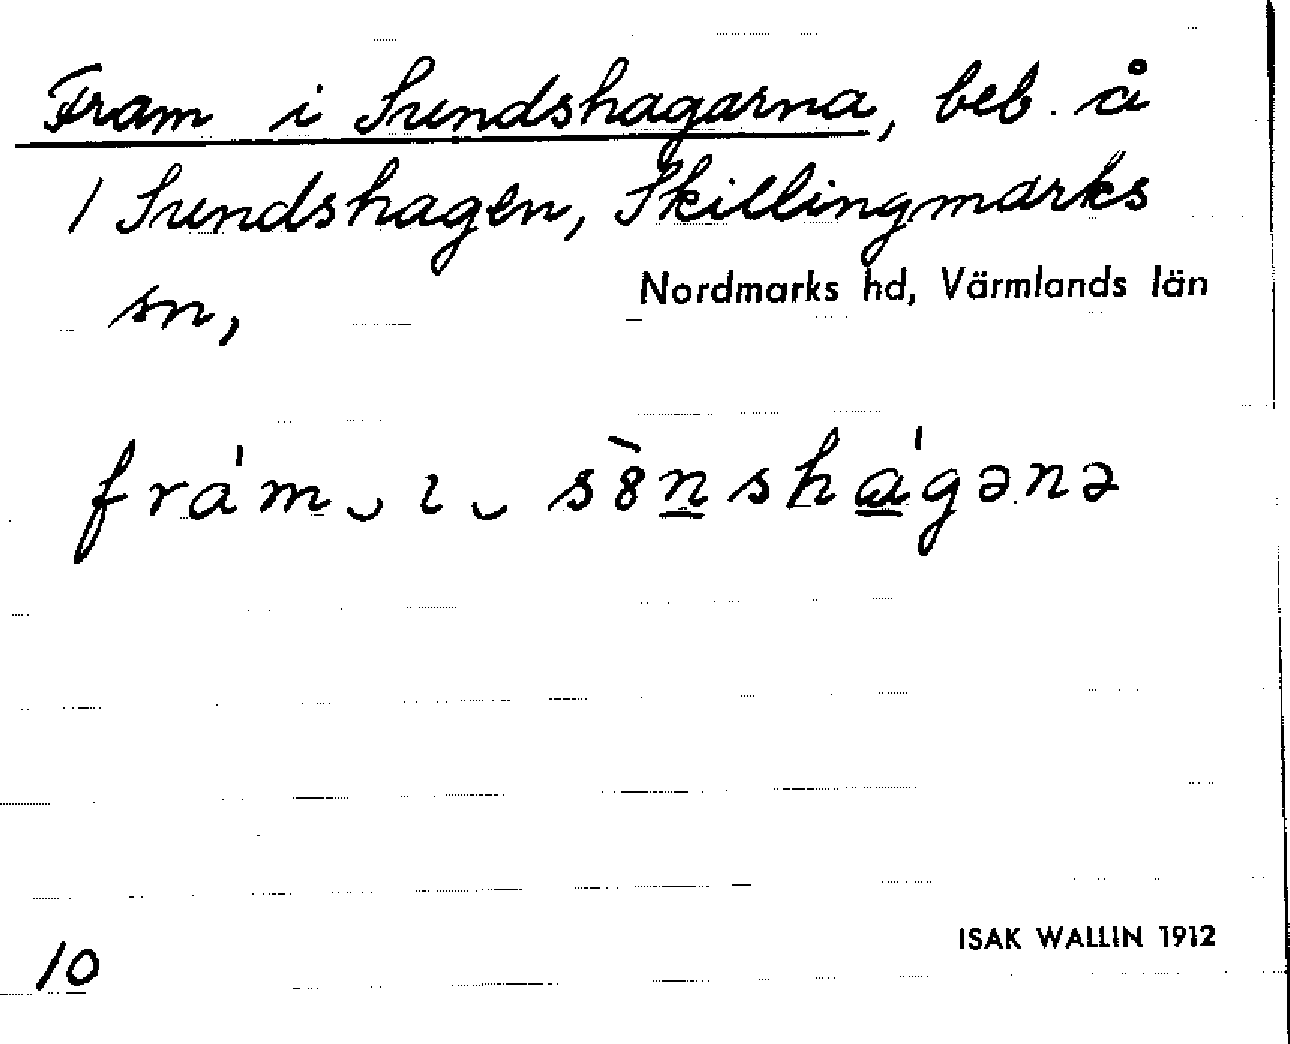 Fram i Sundshagarna, beb. å
1 Sundshagen, Skillingmarks
sn, Nordmarks hd, Värmlands län
fra'm ‿ ɩ ‿ sò̈nsha'gənə
10
ISAK WALLIN 1912